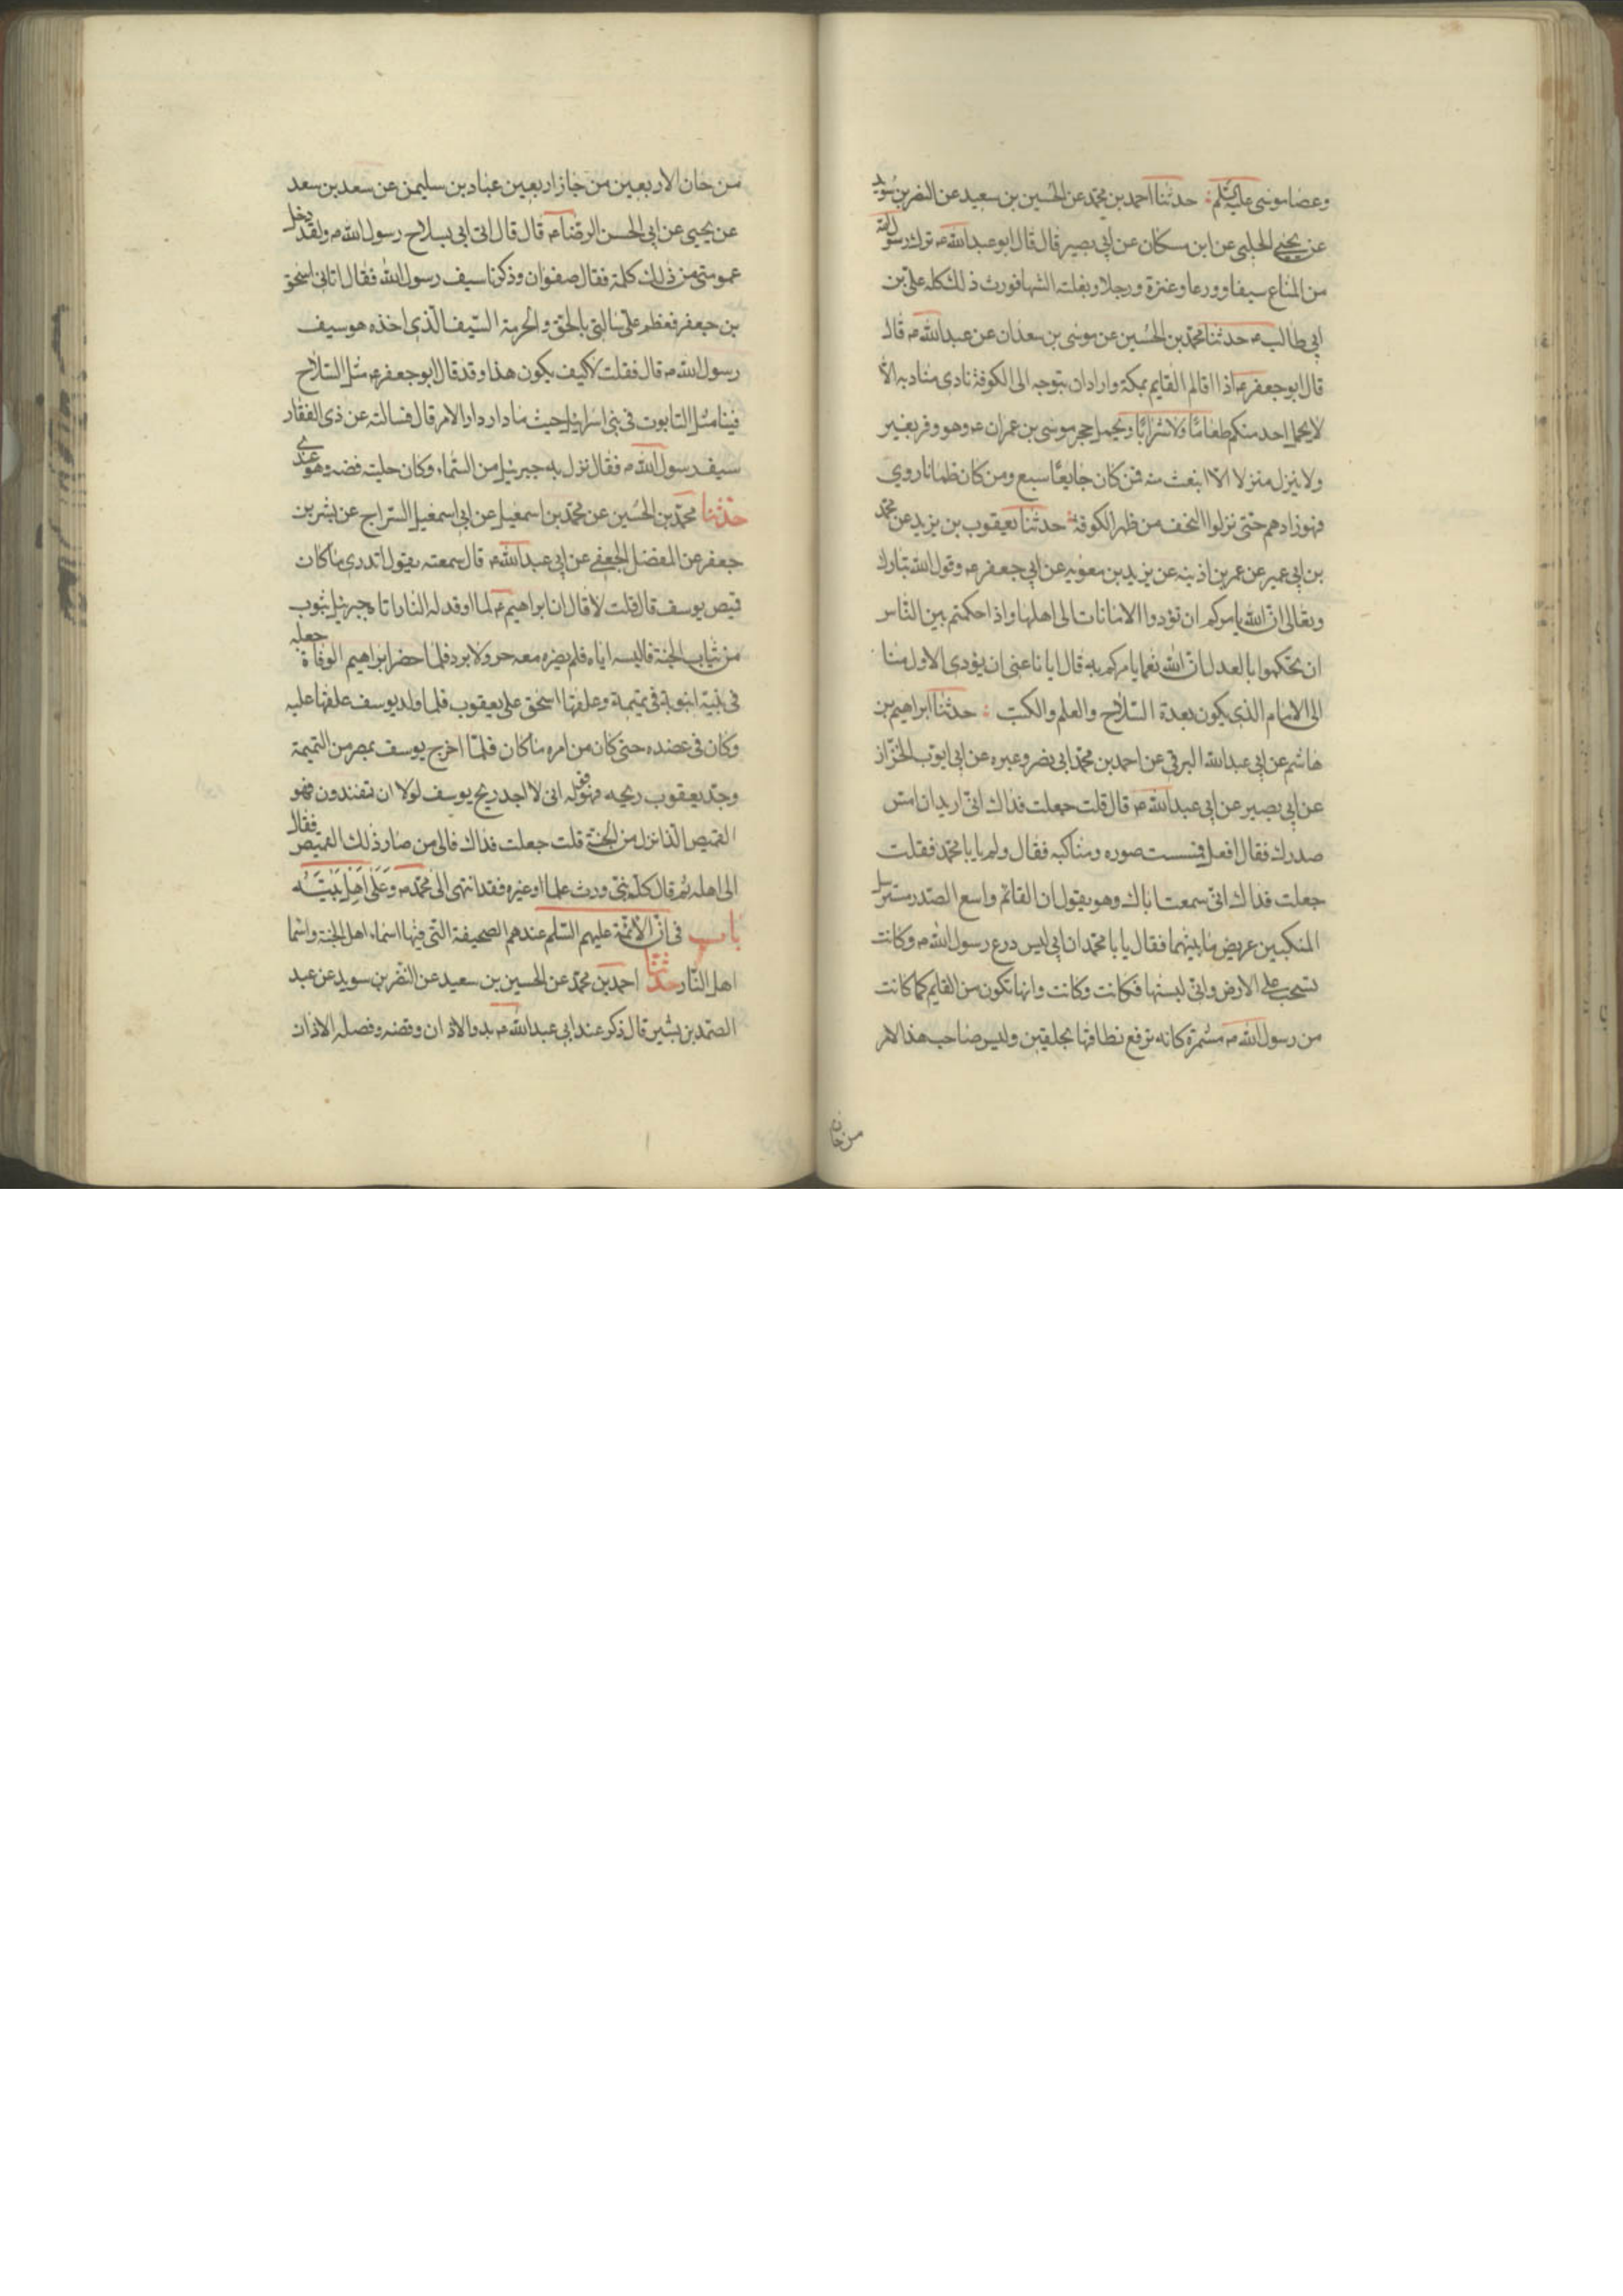 وعصا موسى عليه السلم ؞ حدثنا احمد بن محمد عن الحسين بن سعيد عن النضر بن سويد
عن يحيى الحلبي عن ابن مسكان عن ابي بصير قال قال ابو عبد الله ع ترك رسول الله
من المتاع سيفا وورعا وعنزة ورجلا وبغلته الشهبا فورث ذلك كله علي بن
ابي طالب ع حدثنا محمد بن الحسين عن موسى بن سعدان عن عبد الله ع قال
قال ابو جعفر ع اذا اقالم القايم بمكة واراد ان يتوجه الى الكوفة نادى مناديه الا
لا يحمل احد منكم طعاما ولا شرابا ويحمل حجر موسى بن عمران ع وهو وقر بعير
ولا ينزل منزلا الا انبعث منه فمن كان جايعا سبع ومن كان ظمانا روي
فهو زادهم حتى نزلوا النجف من ظهر الكوفة ؞ حدثنا يعقوب بن يزيد عن محمد
بن ابي عمير عن عمر بن اذينه عن يزيد بن معويه عن ابي جعفر ع وقول الله تبارك
وتعالى ان الله يامركم ان تؤدوا الامانات الى اهلها واذا حكمتم بين الناس
ان تحكموا بالعدل ان الله نعما يامركم به قال ايانا عنى ان يؤدى الاول منا
الى الامام الذي يكون بعدة السلاح والعلم والكتب ؞ حدثنا ابراهيم بن
هاشم عن ابي عبد الله البرقي عن احمد بن محمد ابي نصر وغيره عن ابي ايوب الخزاز
عن ابي بصير عن ابي عبد الله ع قال قلت جعلت فداك اني اريد ان امس
صدرك فقال افعل فمسست صوره ومناكبه فقال ولم يابا محمد فقلت
جعلت فداك اني سمعت اباك وهو يقول ان القائم واسع الصدر مسترسل
المنكبين عريض ما بينهما فقال يابا محمد ان ابي لبس درع رسول الله ص وكانت
تسحب على الارض واني لبستها فكانت وكانت وانها تكون من القايم كما كانت
من رسول الله ص مشمرة كانه ترفع نطاقها بحلقين وليس صاحب هذا الامر
من جان
من جان الاربعين من جاز اربعين عباد بن سليمن عن سعد بن سعد
عن يحيى عن ابي الحسن الرضا ع قال قال اتى ابي بسلاح رسول الله ص ولقد دخل
عمومتي من ذلك كلمة فقال صفوان وذكرنا سيف رسول الله فقال اتاني اسحق
بن جعفر فعظم علي سالتي بالحق والحرمة السيف الذي اخذه هو سيف
رسول الله ص قال فقلت لا كيف يكون هذا وقد قال ابو جعفر ع مثل السلاح
فينا مثل التابوت في بني اسرائيل حيث ما دار دار الامر قال فسالته عن ذي الفقار
سيف رسول الله ص فقال نزل به جبرئيل من السماء وكان حليته فضه وهو عندي
حدثنا محمد بن الحسين عن محمد بن اسمعيل عن ابي اسمعيل السراج عن بشر بن
جعفر عن المفضل الجعفي عن ابي عبد الله ع قال سمعته يقول اتدري ما كان
قميص يوسف قال قلت لا قال ان ابراهيم ع لما اوقد له النار اتاه جبرئيل بثوب
من ثياب الجنة فالبسه اياه فلم يضره معه حر ولا برد فلما حضر ابراهيم الوفاة جعله
في تميمة وعلقها اسحق على يعقوب فلما ولد يوسف علقها عليه
وكان في عضده حتى كان من امره ما كان فلما اخرج يوسف بمصر من التميمة
وجد يعقوب ريحه فهو قوله اني لا اجد ريح يوسف لولا ان تفندون فهو
القميص الذا نزل من الجنة قلت جعلت فداك فالى من صار ذلك القميص فقال
الى اهله ثم قال كل نبي ورث علما او غيره فقد انتهى الى محمد ص وَعَلَى اَهْلِ بَيْتِه
باب في ان الائمة عليهم السلم عندهم الصحيفة التي فيها اسماء اهل الجنة واسما
اهل النار حدثنا احمد بن محمد عن الحسين بن سعيد عن النضر بن سويد عن عبد
الصمد بن بشير قال ذكر عند ابي عبد الله ع بدو الاذان وقصه وفصله الاذان